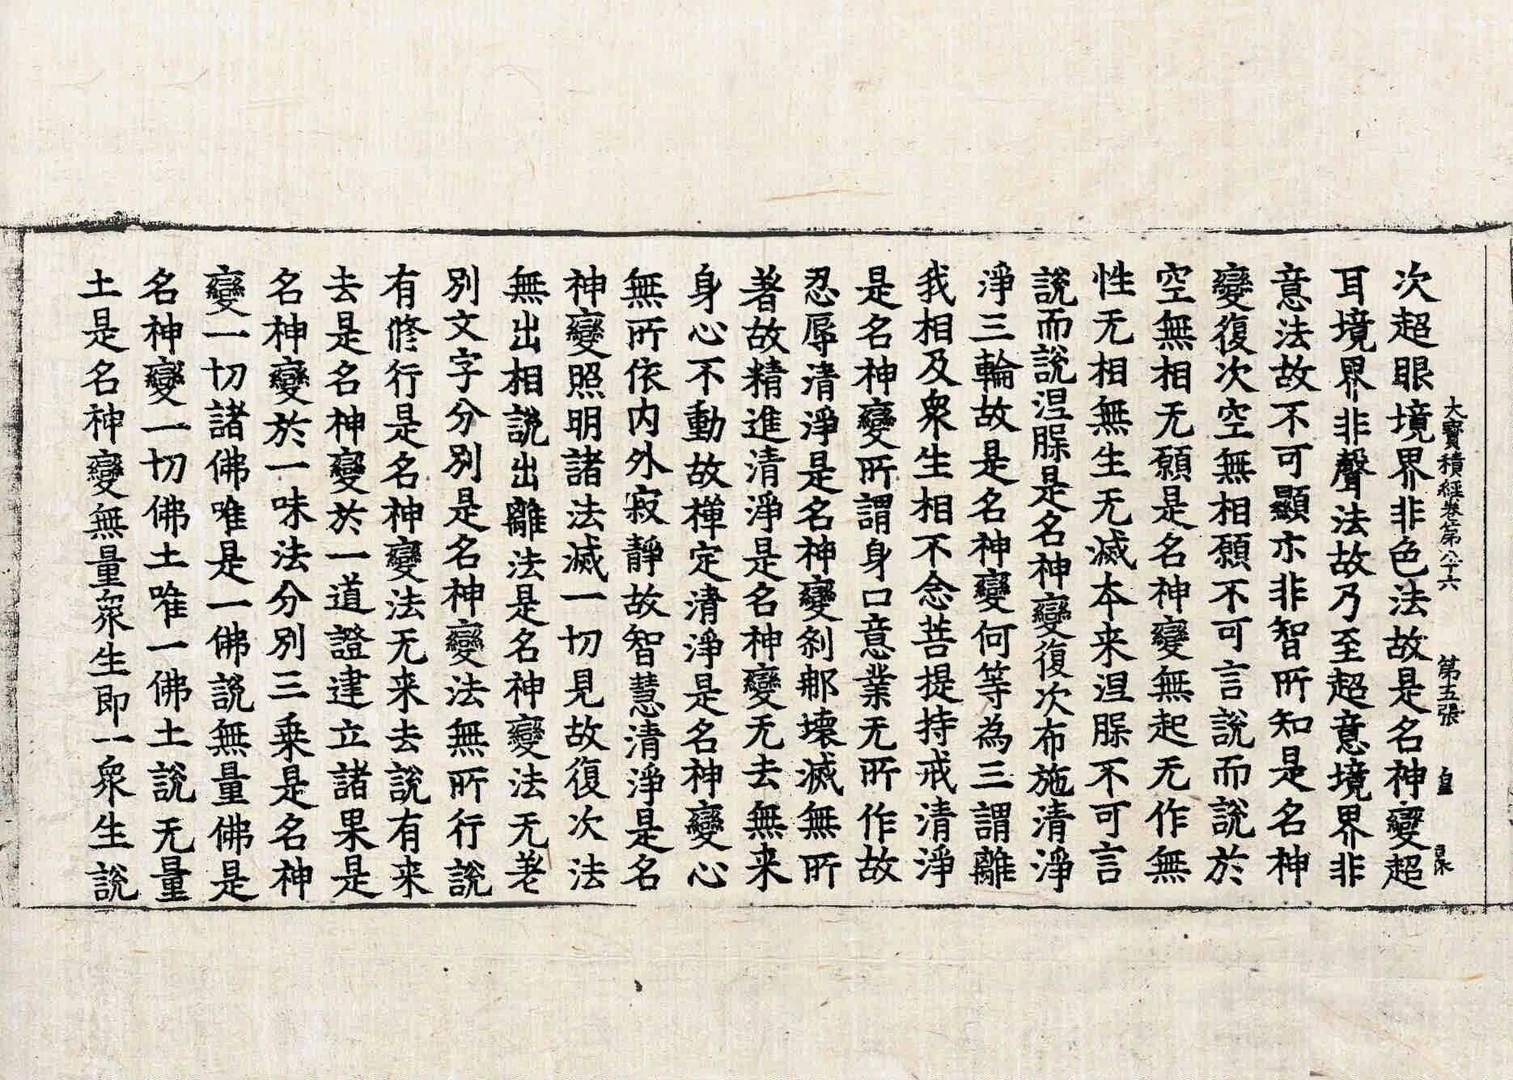 大寶積經卷第八十六　第五張　皇
次超眼境界非色法故是名神變超
耳境界非聲法故乃至超意境界非
意法故不可顯亦非智所知是名神
變復次空無相願不可言說而說於
空無相无願是名神變無起无作無
性无相無生无滅本来涅槃不可言
說而說涅槃是名神變復次布施清淨
淨三輪故是名神變何等為三謂離
我相及衆生相不念菩提持戒清淨
是名神變所謂身口意業无所作故
忍辱清淨是名神變剎那壞滅無所
著故精進清淨是名神變无去無来
身心不動故禪定清淨是名神變心
無所依内外寂靜故智慧清淨是名
神變照明諸法滅一切見故復次法
無出相說出離法是名神變法无老
別文字分別是名神變法無所行說
有修行是名神變法无来去說有来
去是名神變於一道證建立諸果是
名神變於一味法分別三乗是名神
變一切諸佛唯是一佛說無量佛是
名神變一切佛土唯一佛土說无量
土是名神變無量衆生即一衆生說